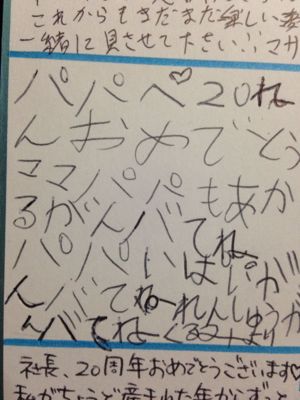 これからもまだまだ楽しい姿
一緒に見させて下さい!! マサ
パパへ♡20ね
んおめでとう
ママパパもあか
るがんバてね
パパいぱいが
んバてねーれんしゅうが
んバてねーくるみより
社長、20周年おめでとうございます♡
私がちょうど産まれた年からずっと